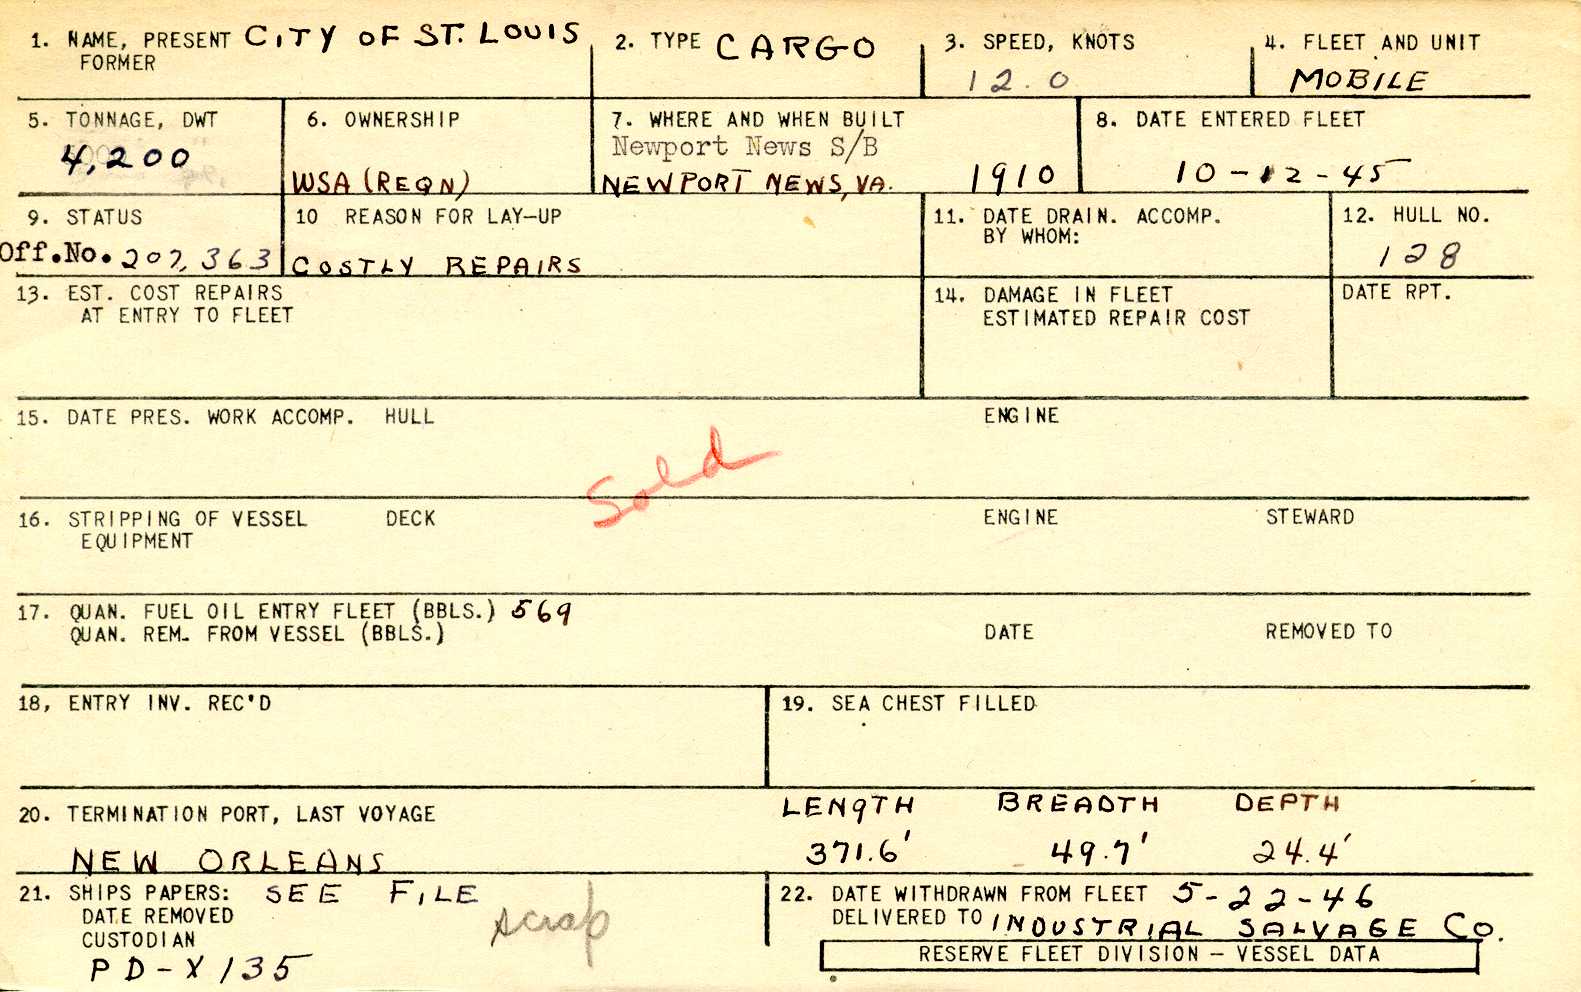 1. NAME, PRESENT CITY OF ST. LOUIS
FORMER
2. TYPE CARGO
3. SPEED, KNOTS
12.0
4. FLEET AND UNIT
MOBILE
5. TONNAGE, DWT
4,200
6. OWNERSHIP
WSA (REQN)
7. WHERE AND WHEN BUILT
Newport News S/B
NEWPORT NEWS, VA. 1910
8. DATE ENTERED FLEET
10-12-45
9. STATUS
Off.No. 207,363
10 REASON FOR LAY-UP
COSTLY REPAIRS
11. DATE DRAIN. ACCOMP.
BY WHOM:
12. HULL NO.
128
13. EST. COST REPAIRS
AT ENTRY TO FLEET
14. DAMAGE IN FLEET
ESTIMATED REPAIR COST
DATE RPT.
15. DATE PRES. WORK ACCOMP. HULL ENGINE
Sold
16. STRIPPING OF VESSEL DECK ENGINE STEWARD
EQUIPMENT
17. QUAN. FUEL OIL ENTRY FLEET (BBLS.) 569
QUAN. REM. FROM VESSEL (BBLS.) DATE REMOVED TO
18, ENTRY INV. REC'D
19. SEA CHEST FILLED
20. TERMINATION PORT, LAST VOYAGE
NEW ORLEANS
LENGTH BREADTH DEPTH
371.6' 49.7' 24.4'
21. SHIPS PAPERS: SEE FILE
DATE REMOVED
CUSTODIAN
PD-X135
scrap
22. DATE WITHDRAWN FROM FLEET 5-22-46
DELIVERED TO INDUSTRIAL SALVAGE CO.
RESERVE FLEET DIVISION – VESSEL DATA